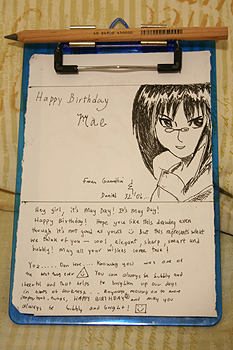 Happy Birthday
Mae
From Gwendolin
&
Daniel
Hey girl, it's May Day! It's May Day!
Happy Birthday! Hope you like this doherty even
though it's not good as yours! But this represents what
we think of you — cool, elegant, sharp, smart and
bubbly! May all your wishes come true!
Yoz..... Dan here... Knowing you was one of
the best things ever You can always be bubbly and
cheerful and that helps to brighten up our days
in times of darkness. moving on to more
important things, HAPPY BIRTHDAY! and may you
always be bubbly and bright!